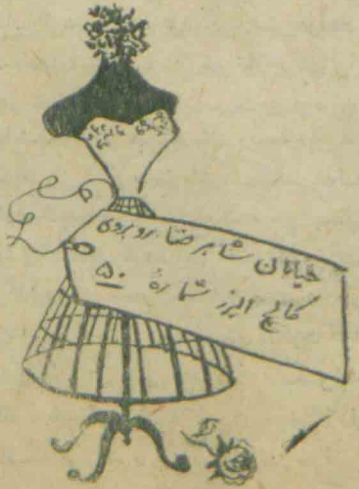 خیابان شاهرضا روبروی
کالج البرز شمارهٔ ۵۰